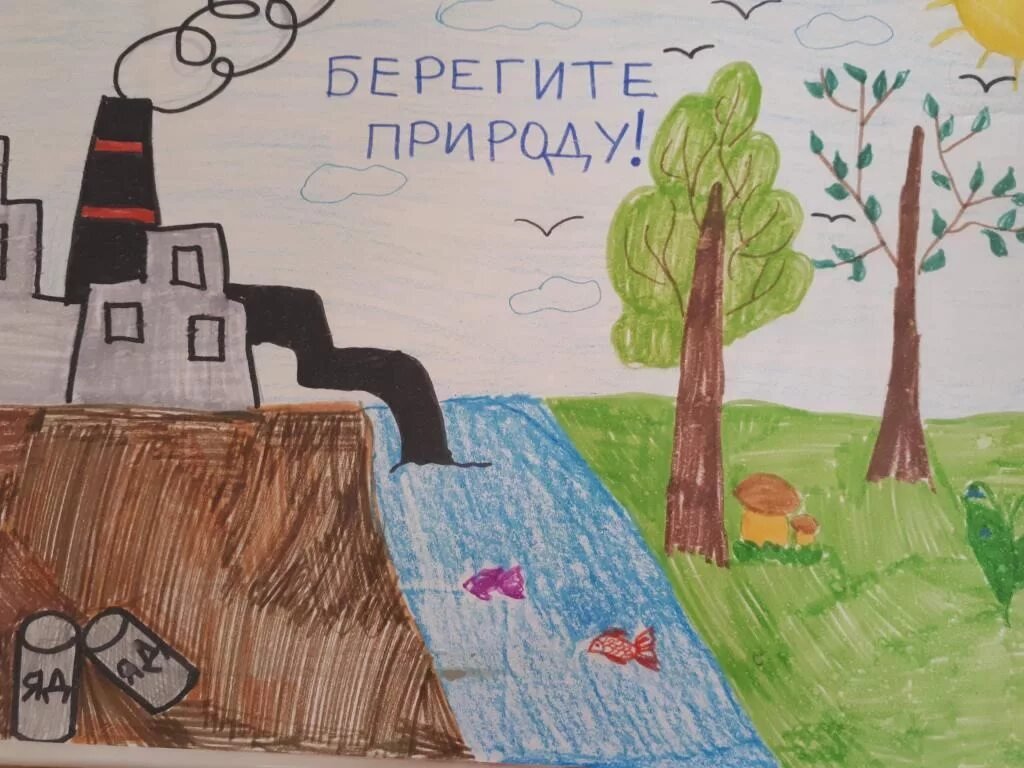 БЕРЕГИТЕ
ПРИРОДУ!
ЯД
ЯД